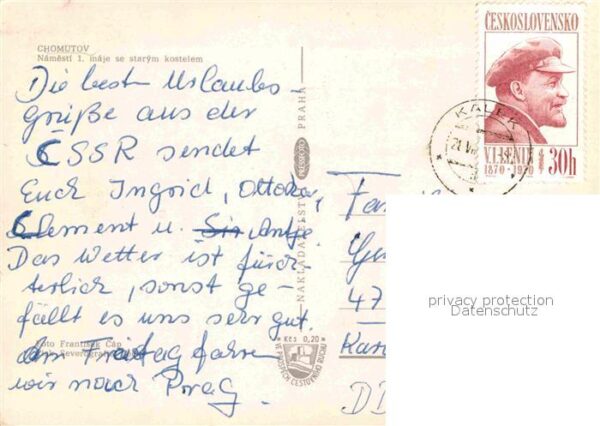 CHOMUTOV
Náměstí 1. máje se starým kostelem
Die best Urlaubs-
grüße aus der
ČSSR sendet
Euch Ingrid, Ottokar,
Clement u. Antje.
Das Wetter ist fürch-
terlich, sonst ge-
fällt es uns sehr gut.
Am Freitag fahren
wir nach Prag.
Foto František Čáp
NAKLADATELSTVÍ PRESSFOTO PRAHA
Kčs 0,20
ČESKOSLOVENSKO
V.I.LENIN
1870-1970
30h
KALEK
47
DD
privacy protection
Datenschutz